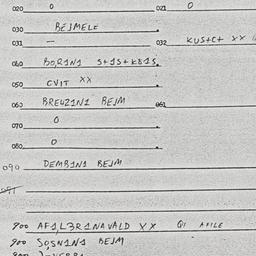 020 0 021 0
030 BEJMELE
031 — 032 KUS+C+ XX
040 BO,R1N1 S+1S+KB1S
050 CVIT XX
060 BREUZ1N1 BEJM 061
070 0
080 0
090 DEMB1N1 BEJM
091
900 AF1,L3R1NAVALD XX Q1 AFILE
900 SO,SN1N1 BEJM